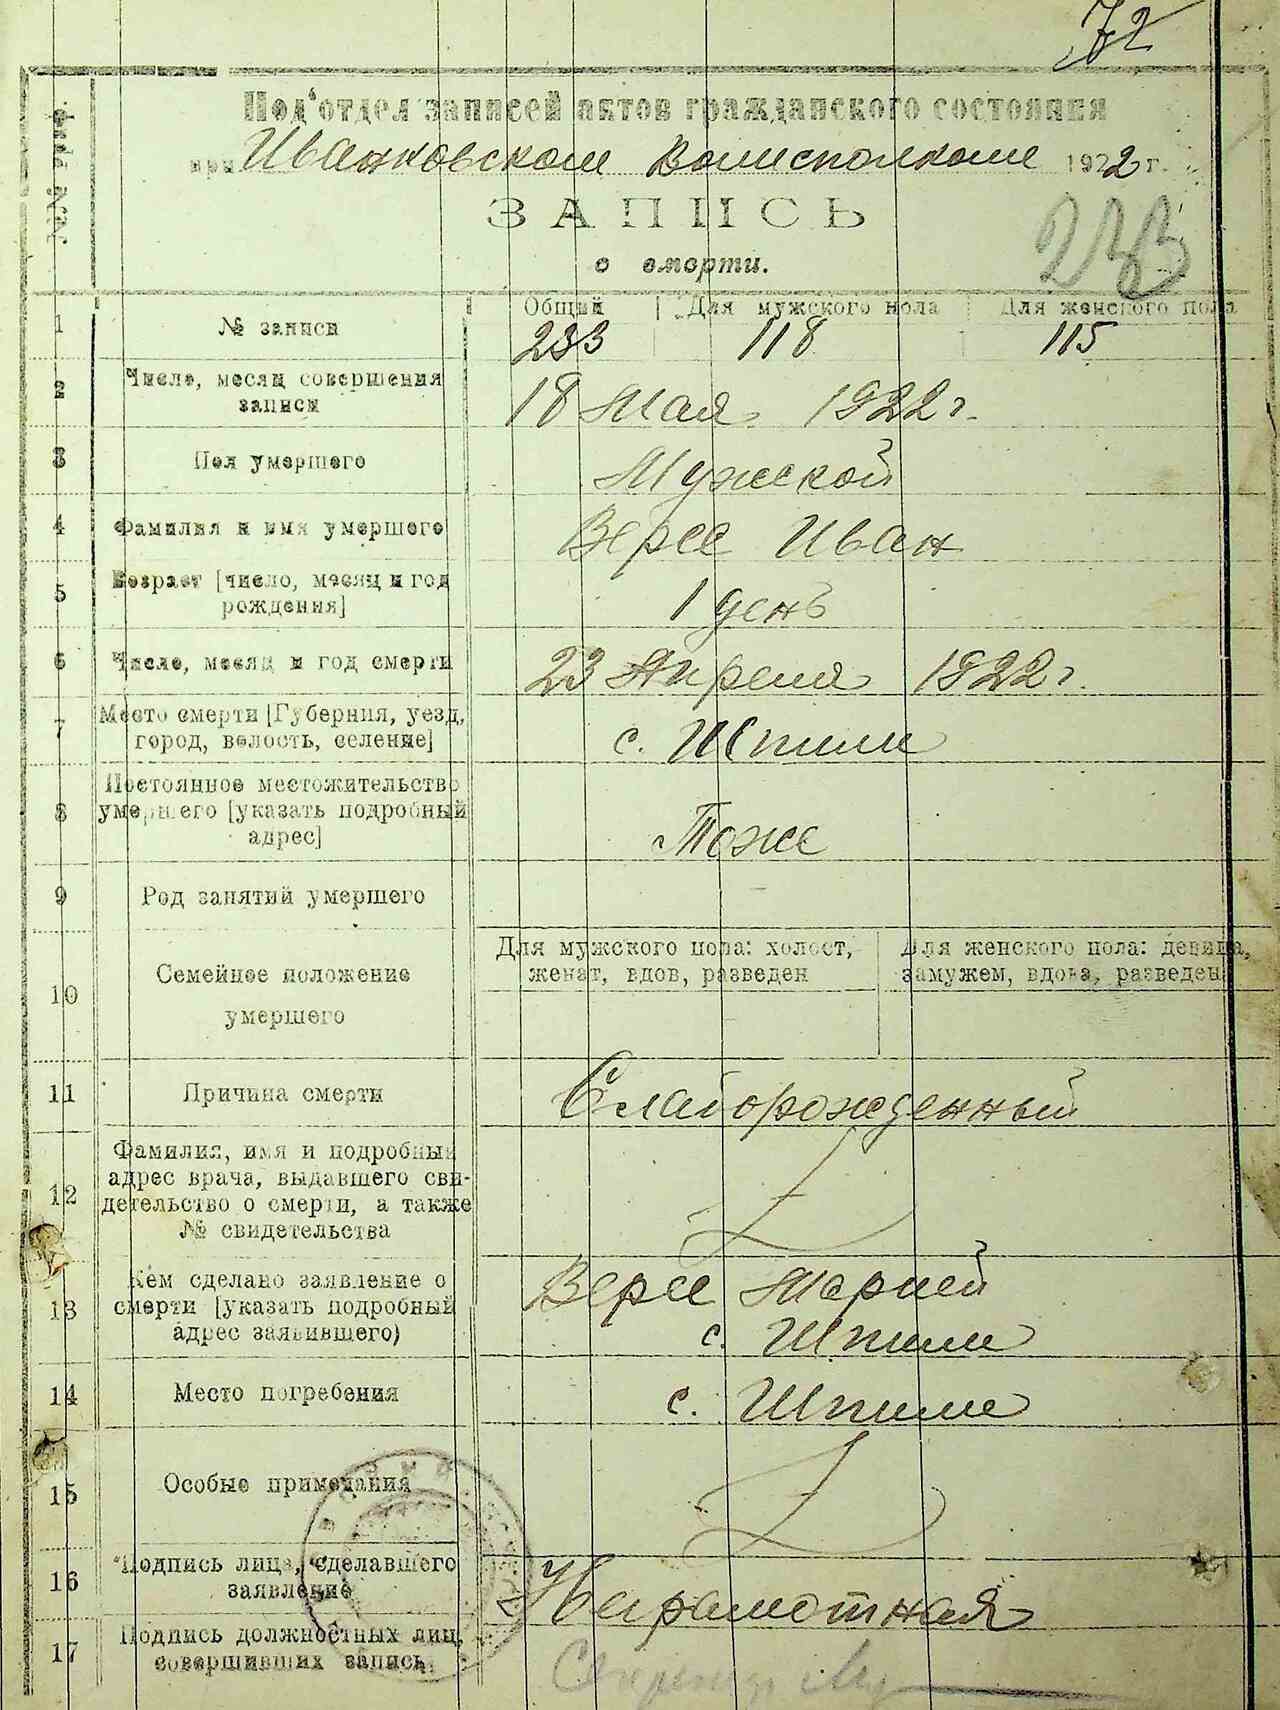 72
№№ граф.
Под'отдел записей актов гражданского состояния
при Иванковском Волисполкоме 1922 г.
ЗАПИСЬ
о смерти.
233
Общий | Для мужского пола | Для женского пола
1 № записи 233 118 115
2 Число, месяц совершения
записи 18 Мая 1922 г.
3 Пол умершего Мужской
4 Фамилия и имя умершего Верес Иван
5 Возраст [число, месяц и год
рождения] 1 день
6 Число, месяц и год смерти 23 Апреля 1922 г.
7 Место смерти [Губерния, уезд,
город, волость, селение] с. Шпили
8 Постоянное местожительство
умершего [указать подробный
адрес] Тоже
9 Род занятий умершего
10 Семейное положение
умершего
Для мужского пола: холост,
женат, вдов, разведен
Для женского пола: девица,
замужем, вдова, разведена
11 Причина смерти Слаборожденный
12 Фамилия, имя и подробный
адрес врача, выдавшего сви-
детельство о смерти, а также
№ свидетельства
13 Кем сделано заявление о
смерти [указать подробный
адрес заявившего)
Верес Марией
с. Шпили
14 Место погребения с. Шпили
15 Особые примечания
16 Подпись лица, сделавшего
заявление Неграмотная
17 Подпись должностных лиц,
совершивших запись